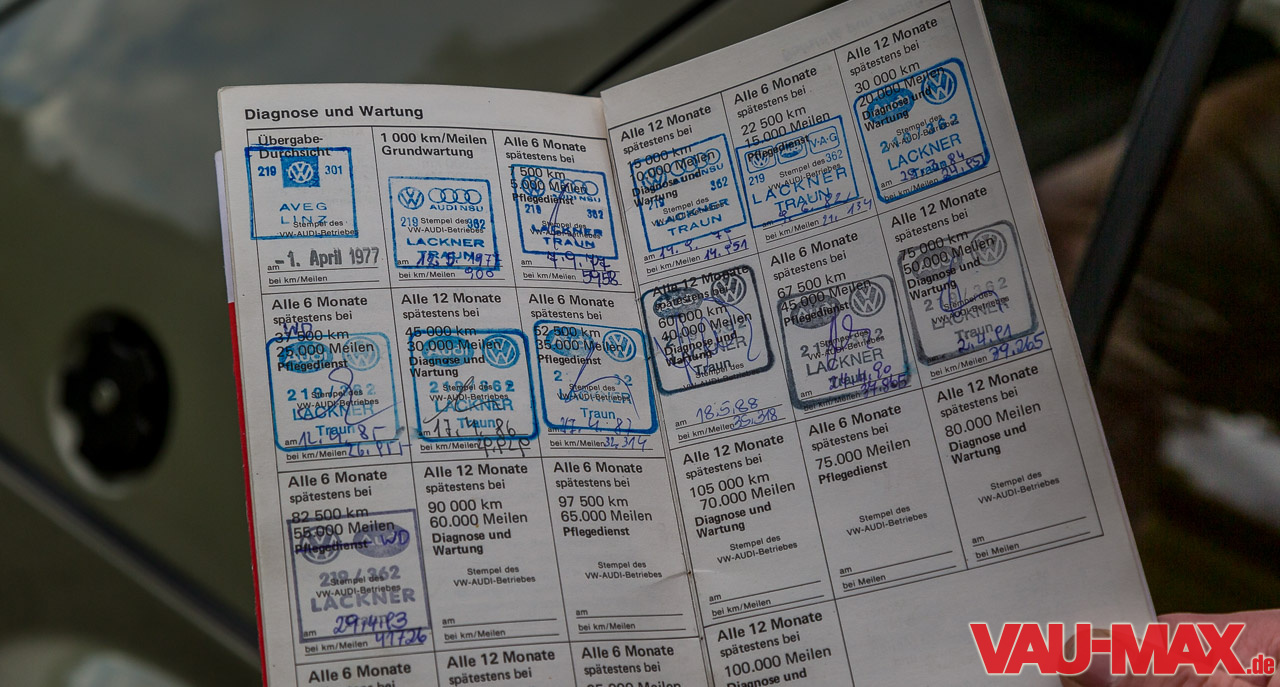 Diagnose und Wartung
Übergabe-
Durchsicht
219 301
AVEG
LINZ
Stempel des
VW-AUDI-Betriebes
am -1. April 1977
bei km/Meilen
1 000 km/Meilen
Grundwartung
AUDI NSU
219 362
Stempel des
VW-AUDI-Betriebes
LACKNER
TRAUN
am
bei km/Meilen 900
Alle 6 Monate
spätestens bei
5.000 Meilen
Pflegedienst
219 362
LACKNER
TRAUN
am
bei km/Meilen 5958
Alle 12 Monate
spätestens bei
15 000 km
10.000 Meilen
Diagnose und
Wartung
362
LACKNER
TRAUN
am
bei km/Meilen 14.951
Alle 6 Monate
spätestens bei
22 500 km
15.000 Meilen
Pflegedienst
V·A·G
219 362
Stempel des
VW-AUDI-Betriebes
LACKNER
TRAUN
am
bei km/Meilen 21.134
Alle 12 Monate
spätestens bei
30 000 km
20.000 Meilen
Diagnose und
Wartung
Stempel des
VW-AUDI-Betriebes
LACKNER
Traun
am
bei km/Meilen
Alle 6 Monate
spätestens bei
37 500 km
25.000 Meilen
Pflegedienst
219 362
Stempel des
VW-AUDI-Betriebes
LACKNER
Traun
am
bei km/Meilen
Alle 12 Monate
spätestens bei
45 000 km
30.000 Meilen
Diagnose und
Wartung
219 362
Stempel des
VW-AUDI-Betriebes
LACKNER
Traun
am 17.4.86
bei km/Meilen
Alle 6 Monate
spätestens bei
52 500 km
35.000 Meilen
Pflegedienst
Stempel des
VW-AUDI-Betriebes
Traun
am
bei km/Meilen 32.314
Alle 12 Monate
spätestens bei
60 000 km
40.000 Meilen
Diagnose und
Wartung
Traun
am 18.5.88
bei km/Meilen 35.318
Alle 6 Monate
spätestens bei
67 500 km
45.000 Meilen
Pflegedienst
Stempel des
VW-AUDI-Betriebes
LACKNER
Traun
am
bei km/Meilen
Alle 12 Monate
spätestens bei
75 000 km
50.000 Meilen
Diagnose und
Wartung
Stempel des
VW-AUDI-Betriebes
LACKNER
Traun
am 2.4.91
bei km/Meilen 39.265
Alle 6 Monate
spätestens bei
82 500 km
55.000 Meilen
Pflegedienst
219/362
Stempel des
VW-AUDI-Betriebes
LACKNER
am
bei km/Meilen
Alle 12 Monate
spätestens bei
90 000 km
60.000 Meilen
Diagnose und
Wartung
Stempel des
VW-AUDI-Betriebes
am
bei km/Meilen
Alle 6 Monate
spätestens bei
97 500 km
65.000 Meilen
Pflegedienst
Stempel des
VW-AUDI-Betriebes
am
bei km/Meilen
Alle 12 Monate
spätestens bei
105 000 km
70.000 Meilen
Diagnose und
Wartung
Stempel des
VW-AUDI-Betriebes
am
bei km/Meilen
Alle 6 Monate
spätestens bei
75.000 Meilen
Pflegedienst
Stempel des
VW-AUDI-Betriebes
am
bei Meilen
Alle 12 Monate
spätestens bei
80.000 Meilen
Diagnose und
Wartung
Stempel des
VW-AUDI-Betriebes
am
bei Meilen
Alle 6 Monate
spätestens bei
Alle 12 Monate
spätestens bei
Alle 6 Monate
spätestens bei
Alle 12 Monate
spätestens bei
100.000 Meilen
Diagnose und
VAU-MAX.de